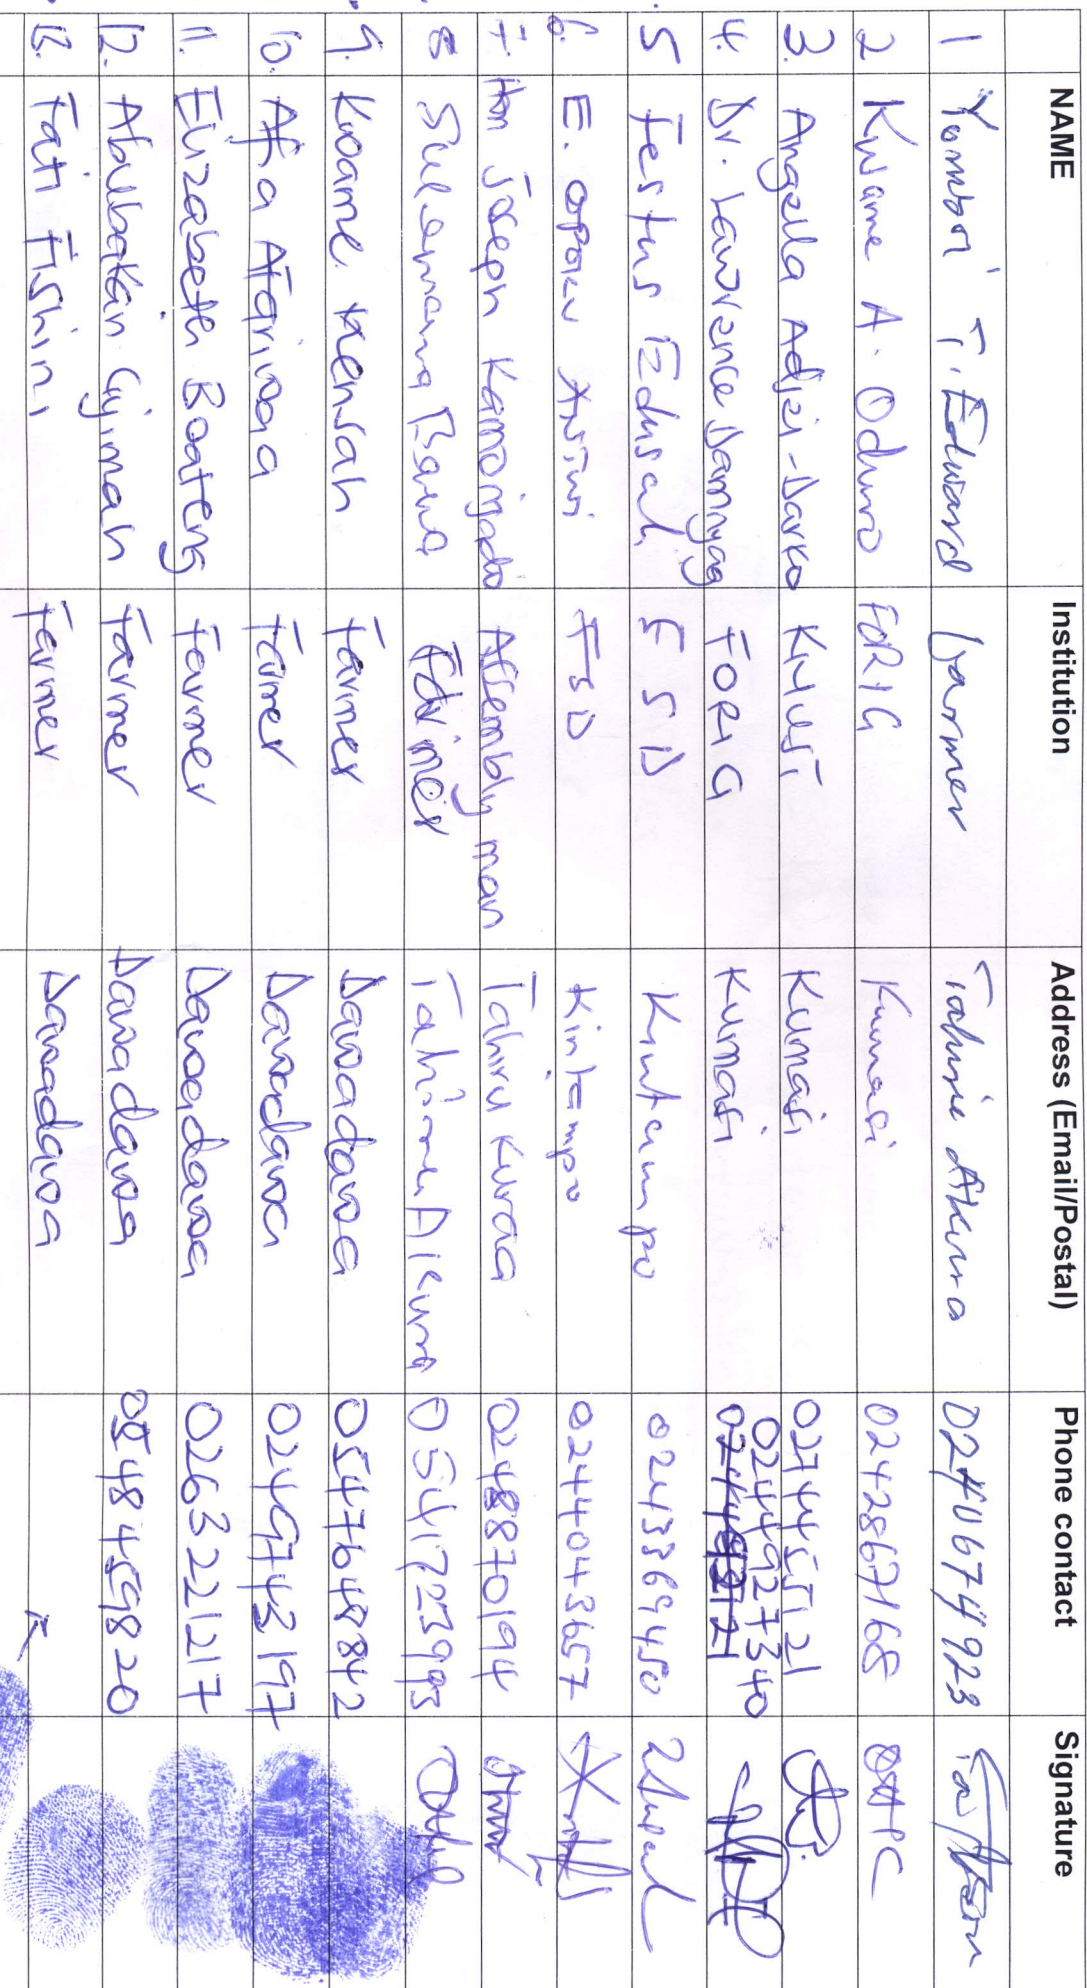 NAME Institution Address (Email/Postal) Phone contact Signature
1 Yombori T. Edward farmer 0240674923
2 Kwame A. Oduro FORIG Kumasi 0242867168
3. Angella Adjei-Darko KNUST Kumasi 0274455121
4. Dr. Lawrence Damnyag FORIG Kumasi 0244927340
5 Festus Edusah FSD Kintampo 0243369450
6. E. Opoku Antwi FSD Kintampo 0244043657
7. Hon Joseph Assembly man Tahiru Kuraa 0248870194
8 Sulemana Farmer 0541723993
9. Kwame Mensah Farmer Dawadawa 0547648842
10. Afia Afariwaa Farmer Dawadawa 0249743197
11. Elizabeth Boateng Farmer Dawadawa 0263221217
12. Abubakari Gyimah Farmer Dawadawa 0548459820
13. Fati Fishini Farmer Dawadawa